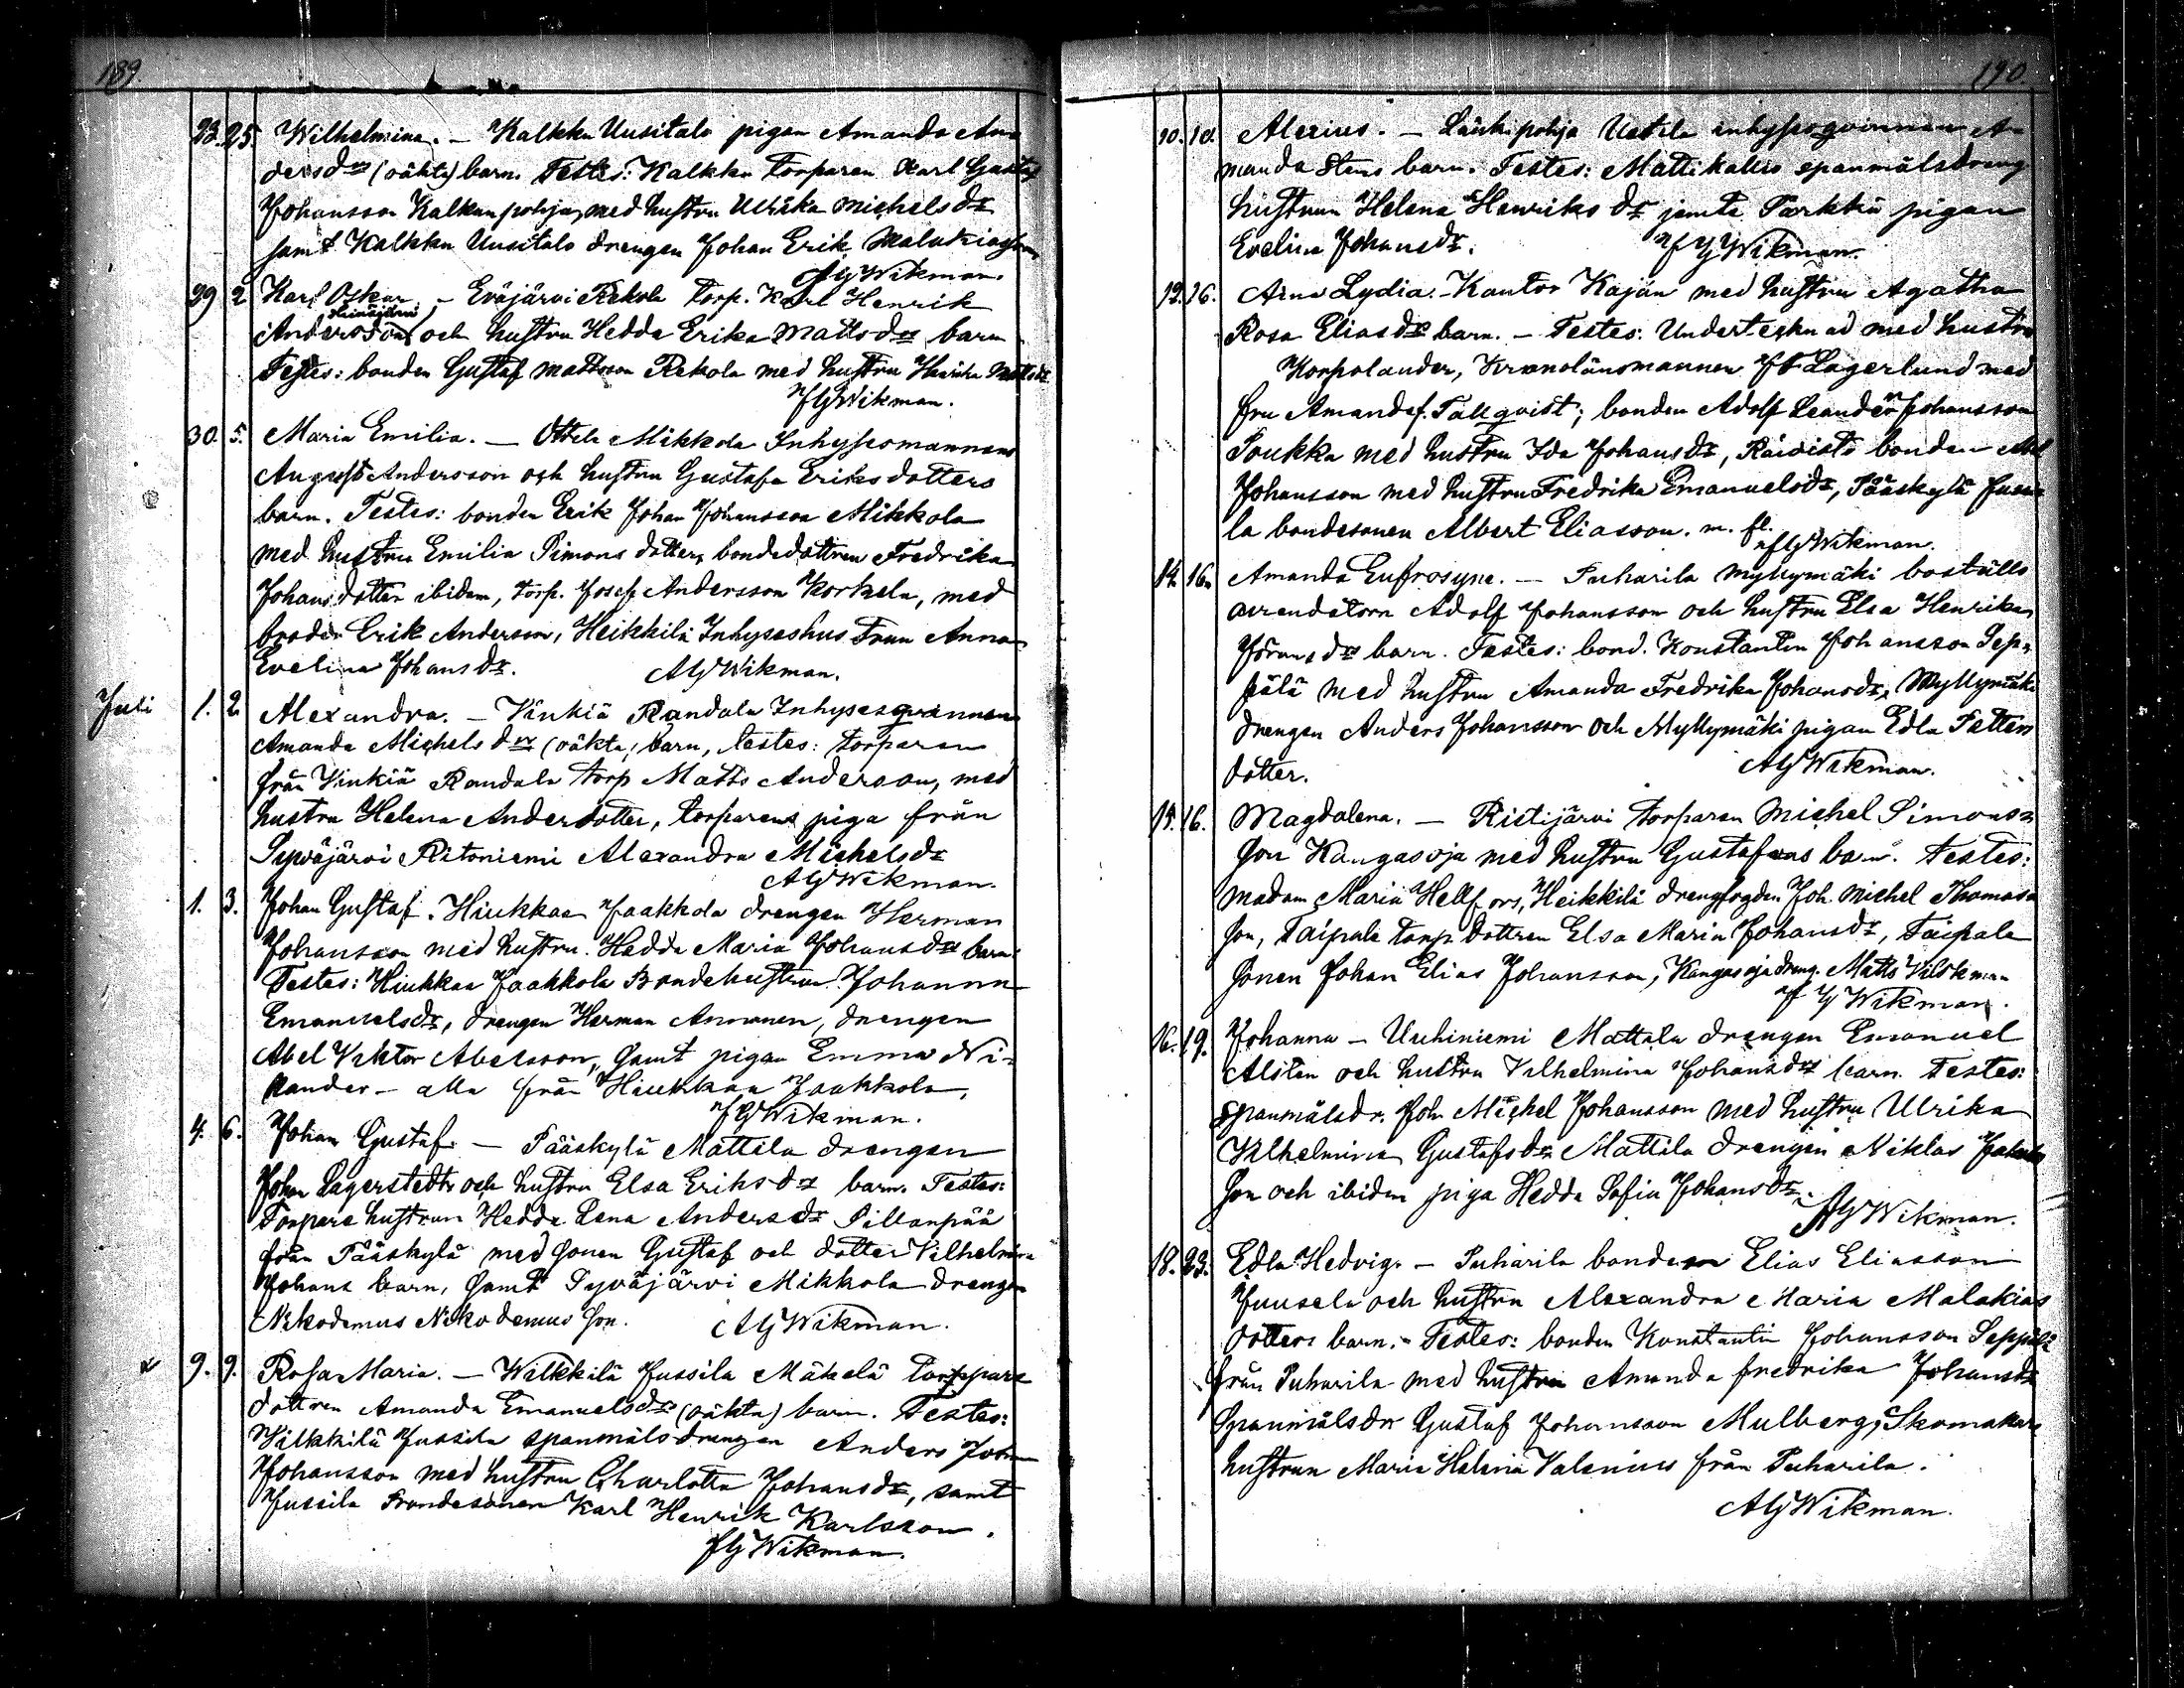 189.
23. 25. Wilhelmina. — Kalkku Uusitalo pigan Amanda An-
dersdrs (oäkta) barn. Testes: Kalkku torparen Karl Gustaf
Johansson Kalkunpohja, med hustru Ulrika Michelsdr
samt Kalkku Uusitalo drengen Johan Erik Malakiasson
AGWikman.
29 2 Karl Oskar. — Eväjärvi Rekola torp. Karl Henrik
Heinäjärvi
Andersson och hustru Hedda Erika Mattsdrs barn
Testes: bonden Gustaf Mattsson Rekola med hustru Mattsdr
AGWikman.
30. 5. Maria Emilia. — Ottila Mikkola Inhysesmannens
August Andersson och hustru Gustafa Eriksdotters
barn. Testes: bonden Erik Johan Johansson Mikkola
med hustru Emilia Simons dotter, bondedottren Fredrika
Johansdotter ibidem, torp. Josef Andersson Korkela, med
broder Erik Andersson, Heikkilä Inhyseshustrun Anna
Evelina Johansdr. AGWikman.
Juli 1. 2 Alexandra. — Vinkiä Randala Inhysesqvinnans
Amanda Michelsdrs (oäkta) barn, testes: torparen
från Vinkiä Randala torp Matts Andersson, med
hustru Helena Andersdotter, torparens piga från
Syväjärvi Ritoniemi Alexandra Michelsdr
AGWikman.
1. 3. Johan Gustaf. Hiukkaa Jaakkola drengen Herman
Johansson med hustru Hedda Maria Johansdrs barn.
Testes: Hiukkaa Jaakkola Bondehustrun Johanna
Emanuelsdr, drengen Herman Annanen, drengen
Abel Viktor Abelsson, samt pigan Emma Ni-
kander — alla från Hiukkaa Jaakkola.
AGWikman.
4. 6. Johan Gustaf. — Pääskylä Mattila drengen
Johan Lagerstedts och hustru Elsa Eriksdrs barn. Testes:
Torpare hustrun Hedda Lena Andersdr Sillanpää
från Pääskylä med sonen Gustaf och dotter Vilhelmina
Johans barn, samt Syväjärvi Mikkola drengen
Nikodemus Nikodemusson. AGWikman.
x 9. 9. Rosa Maria. — Wilkkilä Jussila Mäkelä torpare
dottren Amanda Emanuelsdrs (oäkta) barn. Testes:
Wilkkilä Jussila spanmålsdrengen Anders Johan
Johansson med hustru Charlotta Johansdr, samt
Jussila bondesonen Karl Henrik Karlsson.
AGWikman.
190
10. 10. Alexius. — Länkipohja Uotila inhysesqvinnan A-
manda Stens barn. Testes: Mattikallio spanmålsdreng
hustrun Helena Henriksdr jemte Pärkkö pigan
Evelina Johansdr. AGWikman.
12. 16. Arna Lydia. Kantor Kajan med hustru Agatha
Rosa Eliasdrs barn. — Testes: Undertecknad med hustru
Korpolander, Kronolänsmannen Lagerlund med
fru Amanda f. Tallqvist; bonden Adolf Leander Johansson
Poukka med hustru Ida Johansdr, Råivistö bonden Abel
Johansson med hustru Fredrika Emanuelsdr, Pääskylä Juusi-
la bondesonen Albert Eliasson. m. fl.
AGWikman.
14. 16. Amanda Eufrosyne. — Puharila Myllymäki boställs
arrendatorn Adolf Johansson och hustru Elsa Henrika
Jöransdrs barn. Testes: bond. Konstantin Johansson Sep-
pälä med hustru Amanda Fredrika Johansdr, Myllymäki
drengen Anders Johansson och Myllymäki pigan Edla
dotter. AGWikman.
15. 16. Magdalena. — Ristijärvi torparen Michel Simons-
son Kangasoja med hustru Gustafvas barn. Testes:
madam Maria Hellfors, Heikkilä drengfogden Joh. Michel Thomas-
son, Taipale torp. dottren Elsa Maria Johansdr, Taipale
sonen Johan Elias Johansson, Kangasoja dreng. Matts Vilskman
AGWikman.
16. 19. Johanna — Uuhiniemi Mattila drengen Emanuel
Alsten och hustru Vilhelmina Johansdrs barn. Testes:
Spanmålsdr. Joh Michel Johansson med hustru Ulrika
Vilhelmina Gustafsdr Mattila drengen Niklas
son och ibidem piga Hedda Sofia Johansdr.
AGWikman.
18. 23. Edla Hedvig. — Puharila bonden Elias Eliasson
Juusela och hustru Alexandra Maria Malakias
dotters barn. — Testes: bonden Konstantin Johansson Seppälä
från Puharila med hustru Amanda Fredrika Johansdr
Spanmålsdr Gustaf Johansson Mulberg, Skomakare
hustrun Maria Helena Valenius från Puharila.
AGWikman.